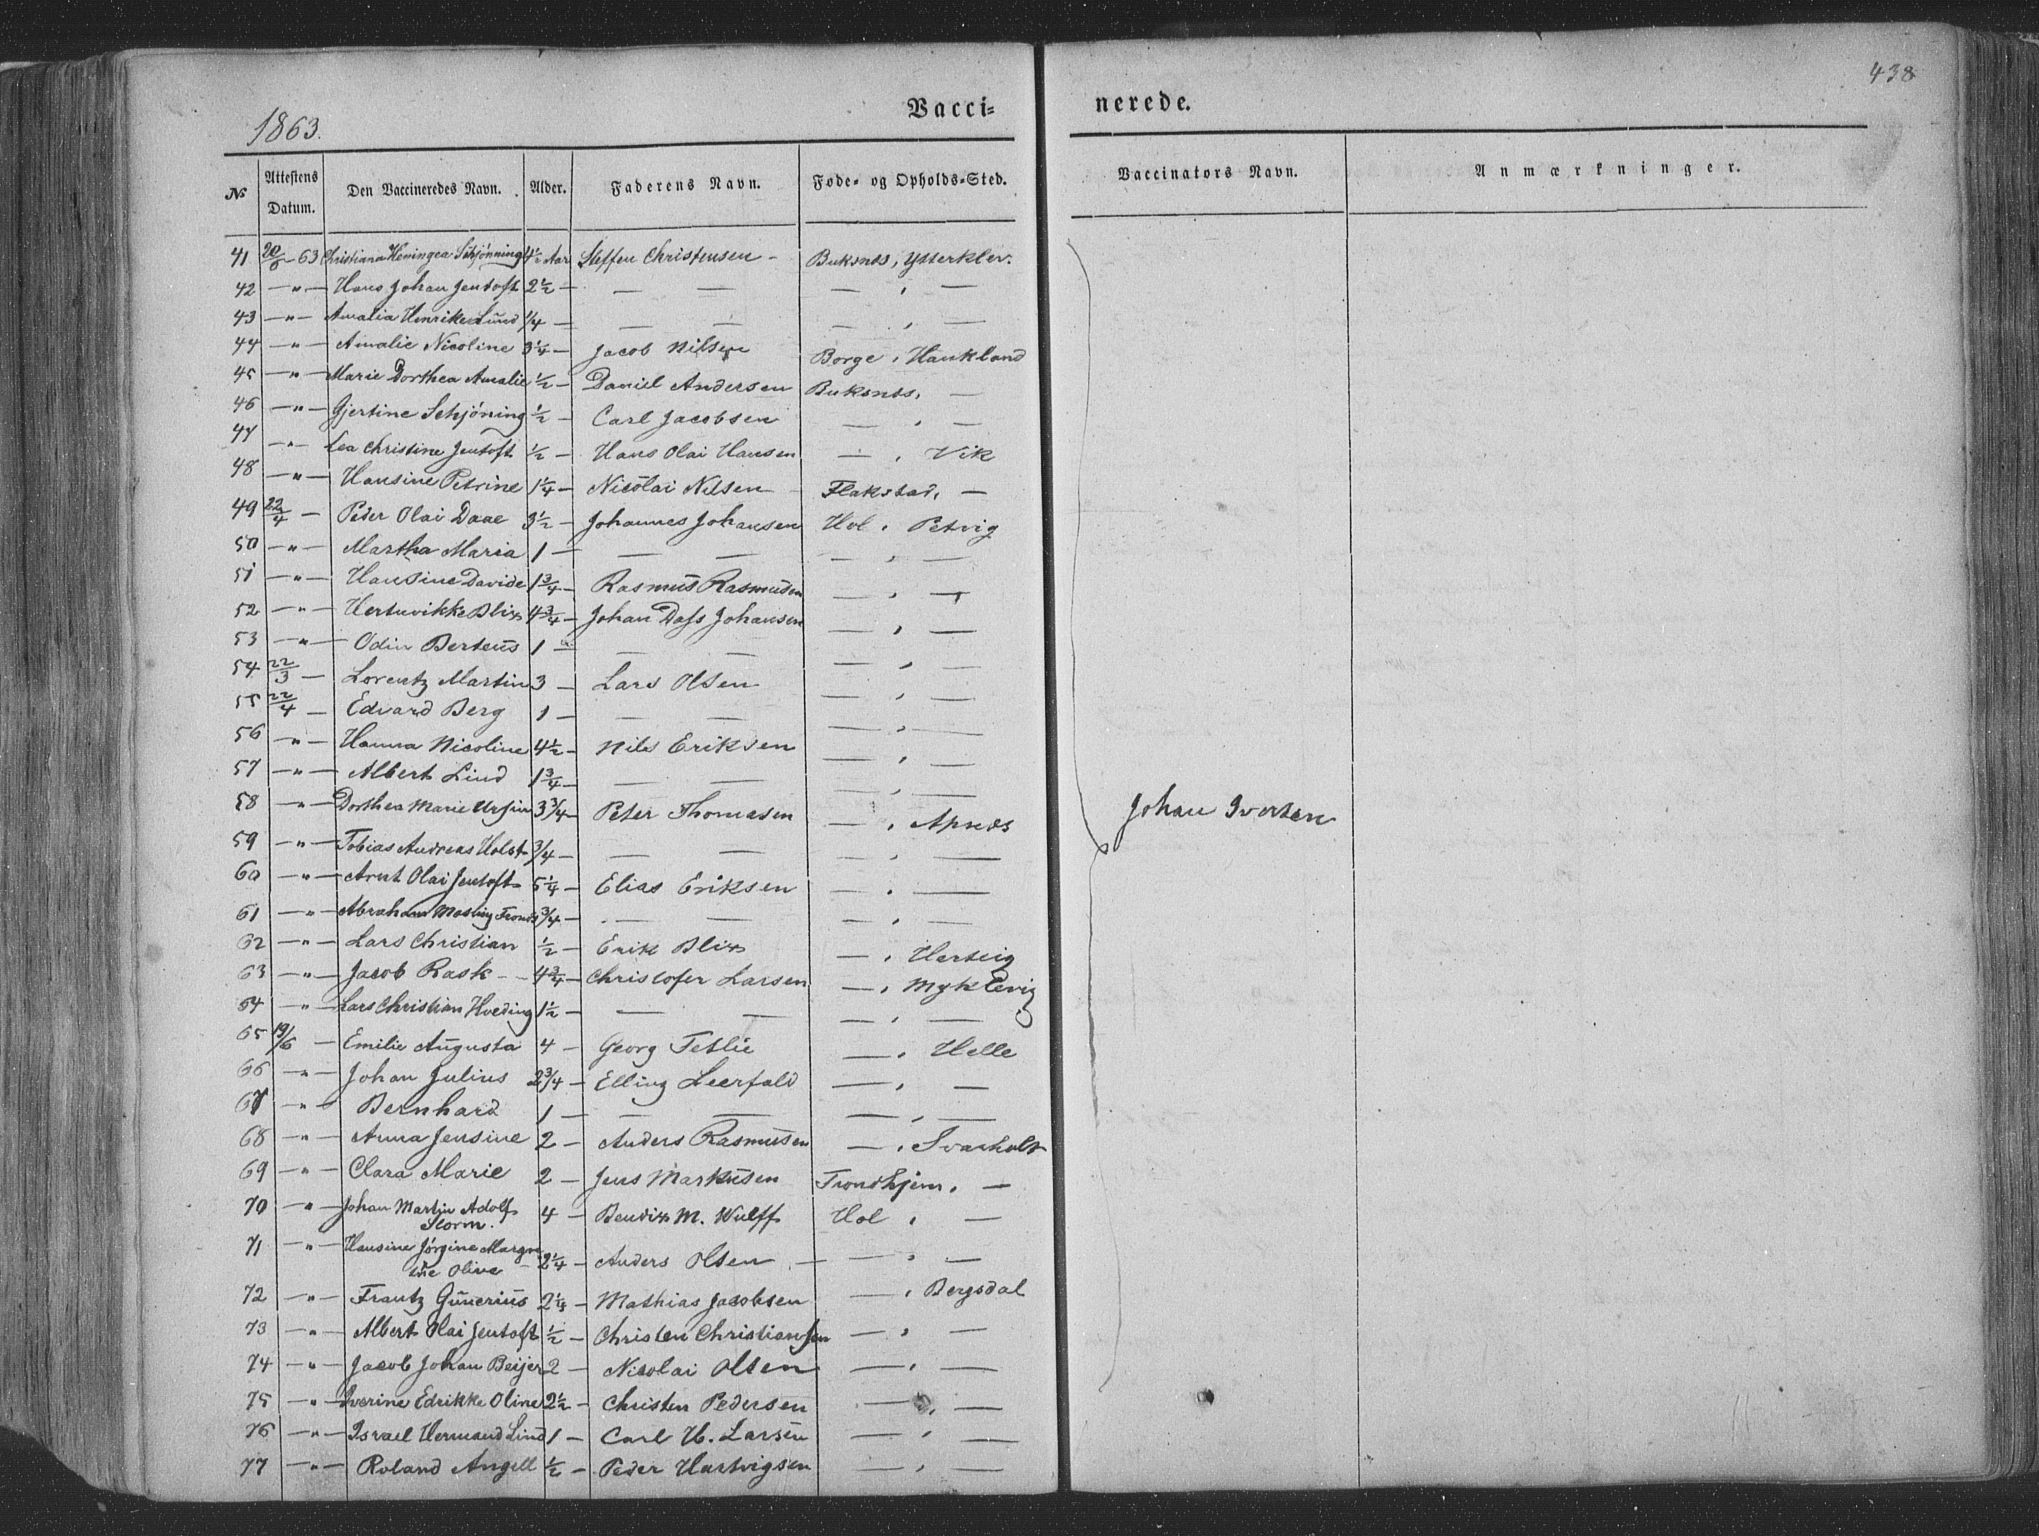 438
1863.
Vacci-
nerede.
No
Attestens Datum.
Den Vaccineredes Navn.
Alder.
Faderens Navn.
Føde- og Opholds-Sted.
Vaccinators Navn.
Anmærkninger.
41 20/6 - 63 Christiana Heningea Schjønning 4½ Aar Steffen Christensen - Buksnes, Ytterklev.
42 — " — Hans Johan Jentoft 2½ — — — — , —
43 — " — Amalia Henrike Lund ¼ — — — — , —
44 — " — Amalie Nicoline 3¼ — Jacob Nilsen Borge , Haukland
45 — " — Marie Dorthea Amalie ½ — Daniel Andersen Buksnes, —
46 — " — Gjertine Schjöning ½ — Carl Jacobsen — , —
47 — " Lea Christine Jentoft ½ — Hans Olai Hansen — , Vik
48 — " — Hansine Petrine 1¼ — Nicolai Nilsen Flakstad, —
49 22/4 — Peder Olai Daae 3½ — Johannes Johansen Hol , Petvig
50 — " — Martha Maria 1 — — — — , —
51 — " — Hansine Davide 1¾ — Rasmus Rasmusen — , —
52 — " — Hertuvikke Blix 4¾ — Johan Dass Johansen — , —
53 — " — Odin Berteus 1 — — — — , —
54 22/3 — Lorentz Martin 3 — Lars Olsen — , —
55 22/4 — Edvard Berg 1 — — — — , —
56 — " — Hanna Nicoline 4½ — Nils Eriksen — , —
57 — " — Albert Lind 1¾ — — — — , —
58 — " — Dorthea Marie Ursin 3¾ — Peter Thomesen — , Apnes
Johan Ivertsen
59 — " — Tobias Andreas Holst ¾ — — — — , —
60 — " — Arnt Olai Jentoft 5¼ — Elias Eriksen — , —
61 — " — Abraham Mosling ¾ — — — — , —
62 — " — Lars Christian ½ — Erik Blix — , Hertvig
63 — " — Jacob Rask - - 4¾ — Christofer Larsen — , Myklevig
64 — " — Lars Christian Hveding 1½ — — — — , —
65 19/6 — Emilie Augusta 4 — Georg Tetlie — , Helle
66 — " — Johan Julius 2¾ — Elling Leerfald — , —
67 — " — Bernhard 1 — — — — , —
68 — " — Anna Jensine 2 — Anders Rasmusen — , Svarholt
69 — " — Clara Marie 2 — Jens Markusen Trondhjem, —
70 — " — Johan Martin Adolf 4 — Bendix M. Wulff Hol , —
Storm.
71 — " — Hansine Jörgine Margre 2¼ — Anders Olsen — — , —
the Olive
72 — " — Frantz Gunerius 2¼ — Mathias Jacobsen — , Bergsdal
73 — " — Albert Olai Jentoft ½ — Christen Christiansen — , —
74 — " — Jacob Johan Beijer 2 — Nicolai Olsen — , —
75 — " — Iverine Edrikke Oline 2½ — Christen Pedersen — , —
76 — " — Israel Hermand Lind 1 — Carl H. Larsen — , —
77 — " — Roland Angell ½ — Peder Hartvigsen — , —